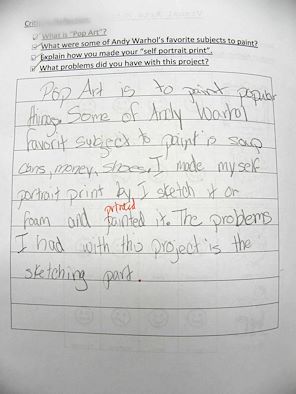 What is "Pop Art"?
What were some of Andy Warhol's favorite subjects to paint?
Explain how you made your "self portrait print".
What problems did you have with this project?
Pop Art is to paint popular
things. Some of Andy Warhol
favorit subject to paint is soup
cans, money, shoes. I made myself
portrait print by I sketch it or
foam and painted it. The problems
printed
I had with this project is the
sketching part.